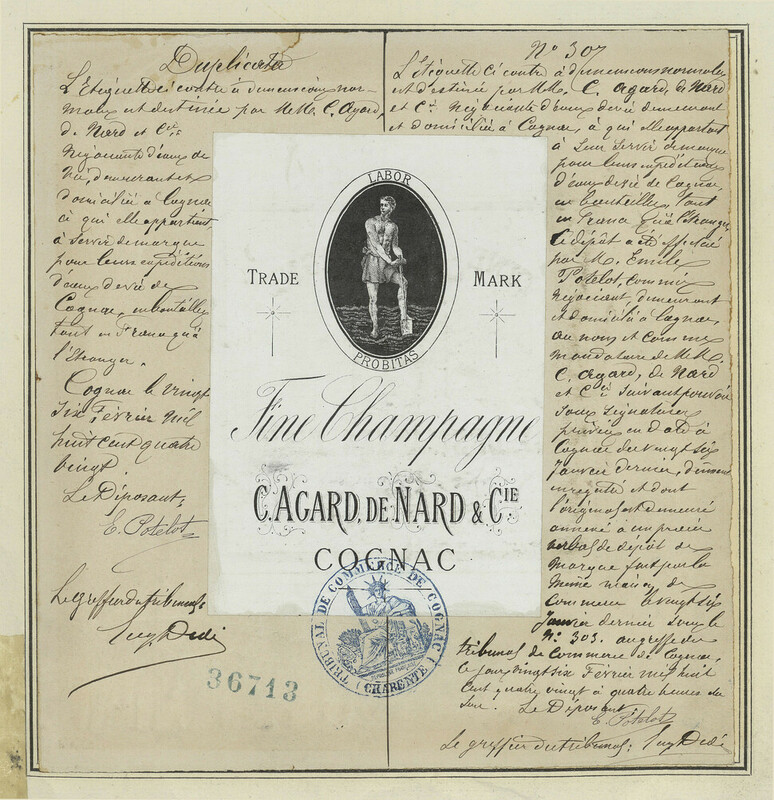 Duplicata
L'Etiquette ci contre à dimensions nor-
males est destinée par MM. C. Agard,
de Nard et Cie
Négociants d'eaux de
vie, demeurant et
domiciliés à Cognac
à qui elle appartient
à servir de marque
pour leurs expéditions
d'eaux de vie de
Cognac, en bouteilles
tant en France qu'à
l'étranger.
Cognac le vingt
six Février mil
huit cent quatre
vingt.
Le Déposant,
E. Potelot
Le greffier du tribunal
36713
LABOR
PROBITAS
TRADE MARK
Fine Champagne
C. AGARD, DE NARD & CIE
COGNAC
TRIBUNAL DE COMMERCE DE COGNAC
(CHARENTE)
No 307
L'Etiquette ci contre à dimensions normales
est destinée par MM. C. Agard, de Nard
et Cie Négociants d'eaux de vie demeurant
et domiciliés à Cognac, à qui elle appartient
à leur servir de marque
pour leurs expéditions
d'eaux de vie de Cognac,
en bouteilles, tant
en France qu'à l'étranger,
le dépôt a été effectué
par M. Emile
Potelot, commis
négociant, demeurant
et domicilié à Cognac,
au nom et comme
mandataire de MM.
C. Agard, de Nard
et Cie suivant pouvoir
sous signatures
privées en date à
Cognac du vingt six
Janvier dernier, dûment
enregistré et dont
l'original est demeuré
annexé à un procès
verbal de dépôt de
marque fait par la
même maison de
commerce le vingt six
Janvier dernier sous le
No. 303. au greffe du
tribunal de commerce de Cognac,
le jour vingt six Février mil huit
cent quatre vingt à quatre heures du
soir. Le Déposant,
E. Potelot
Le greffier du tribunal: